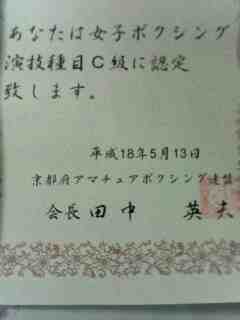 あなたは女子ボクシング
演技種目C級に認定
致します。
平成18年5月13日
京都府アマチュアボクシング連盟
会長 田中 英夫